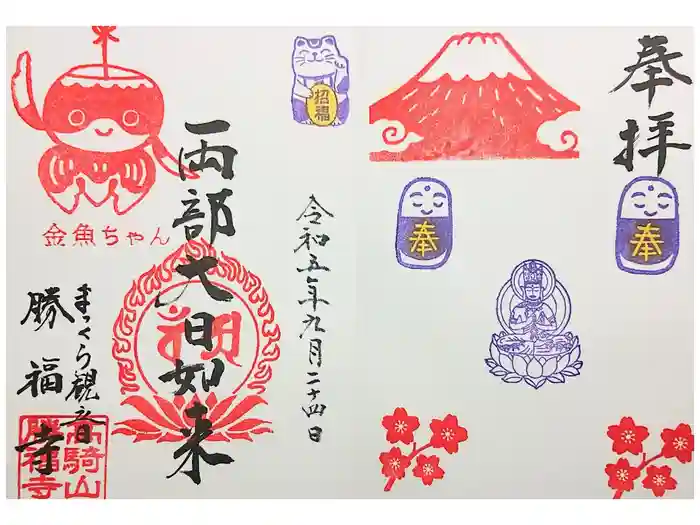 奉拝
奉
奉
招福
令和五年九月二十四日
両部大日如来
金魚ちゃん
まくら観音
勝福寺
高騎山
勝福寺